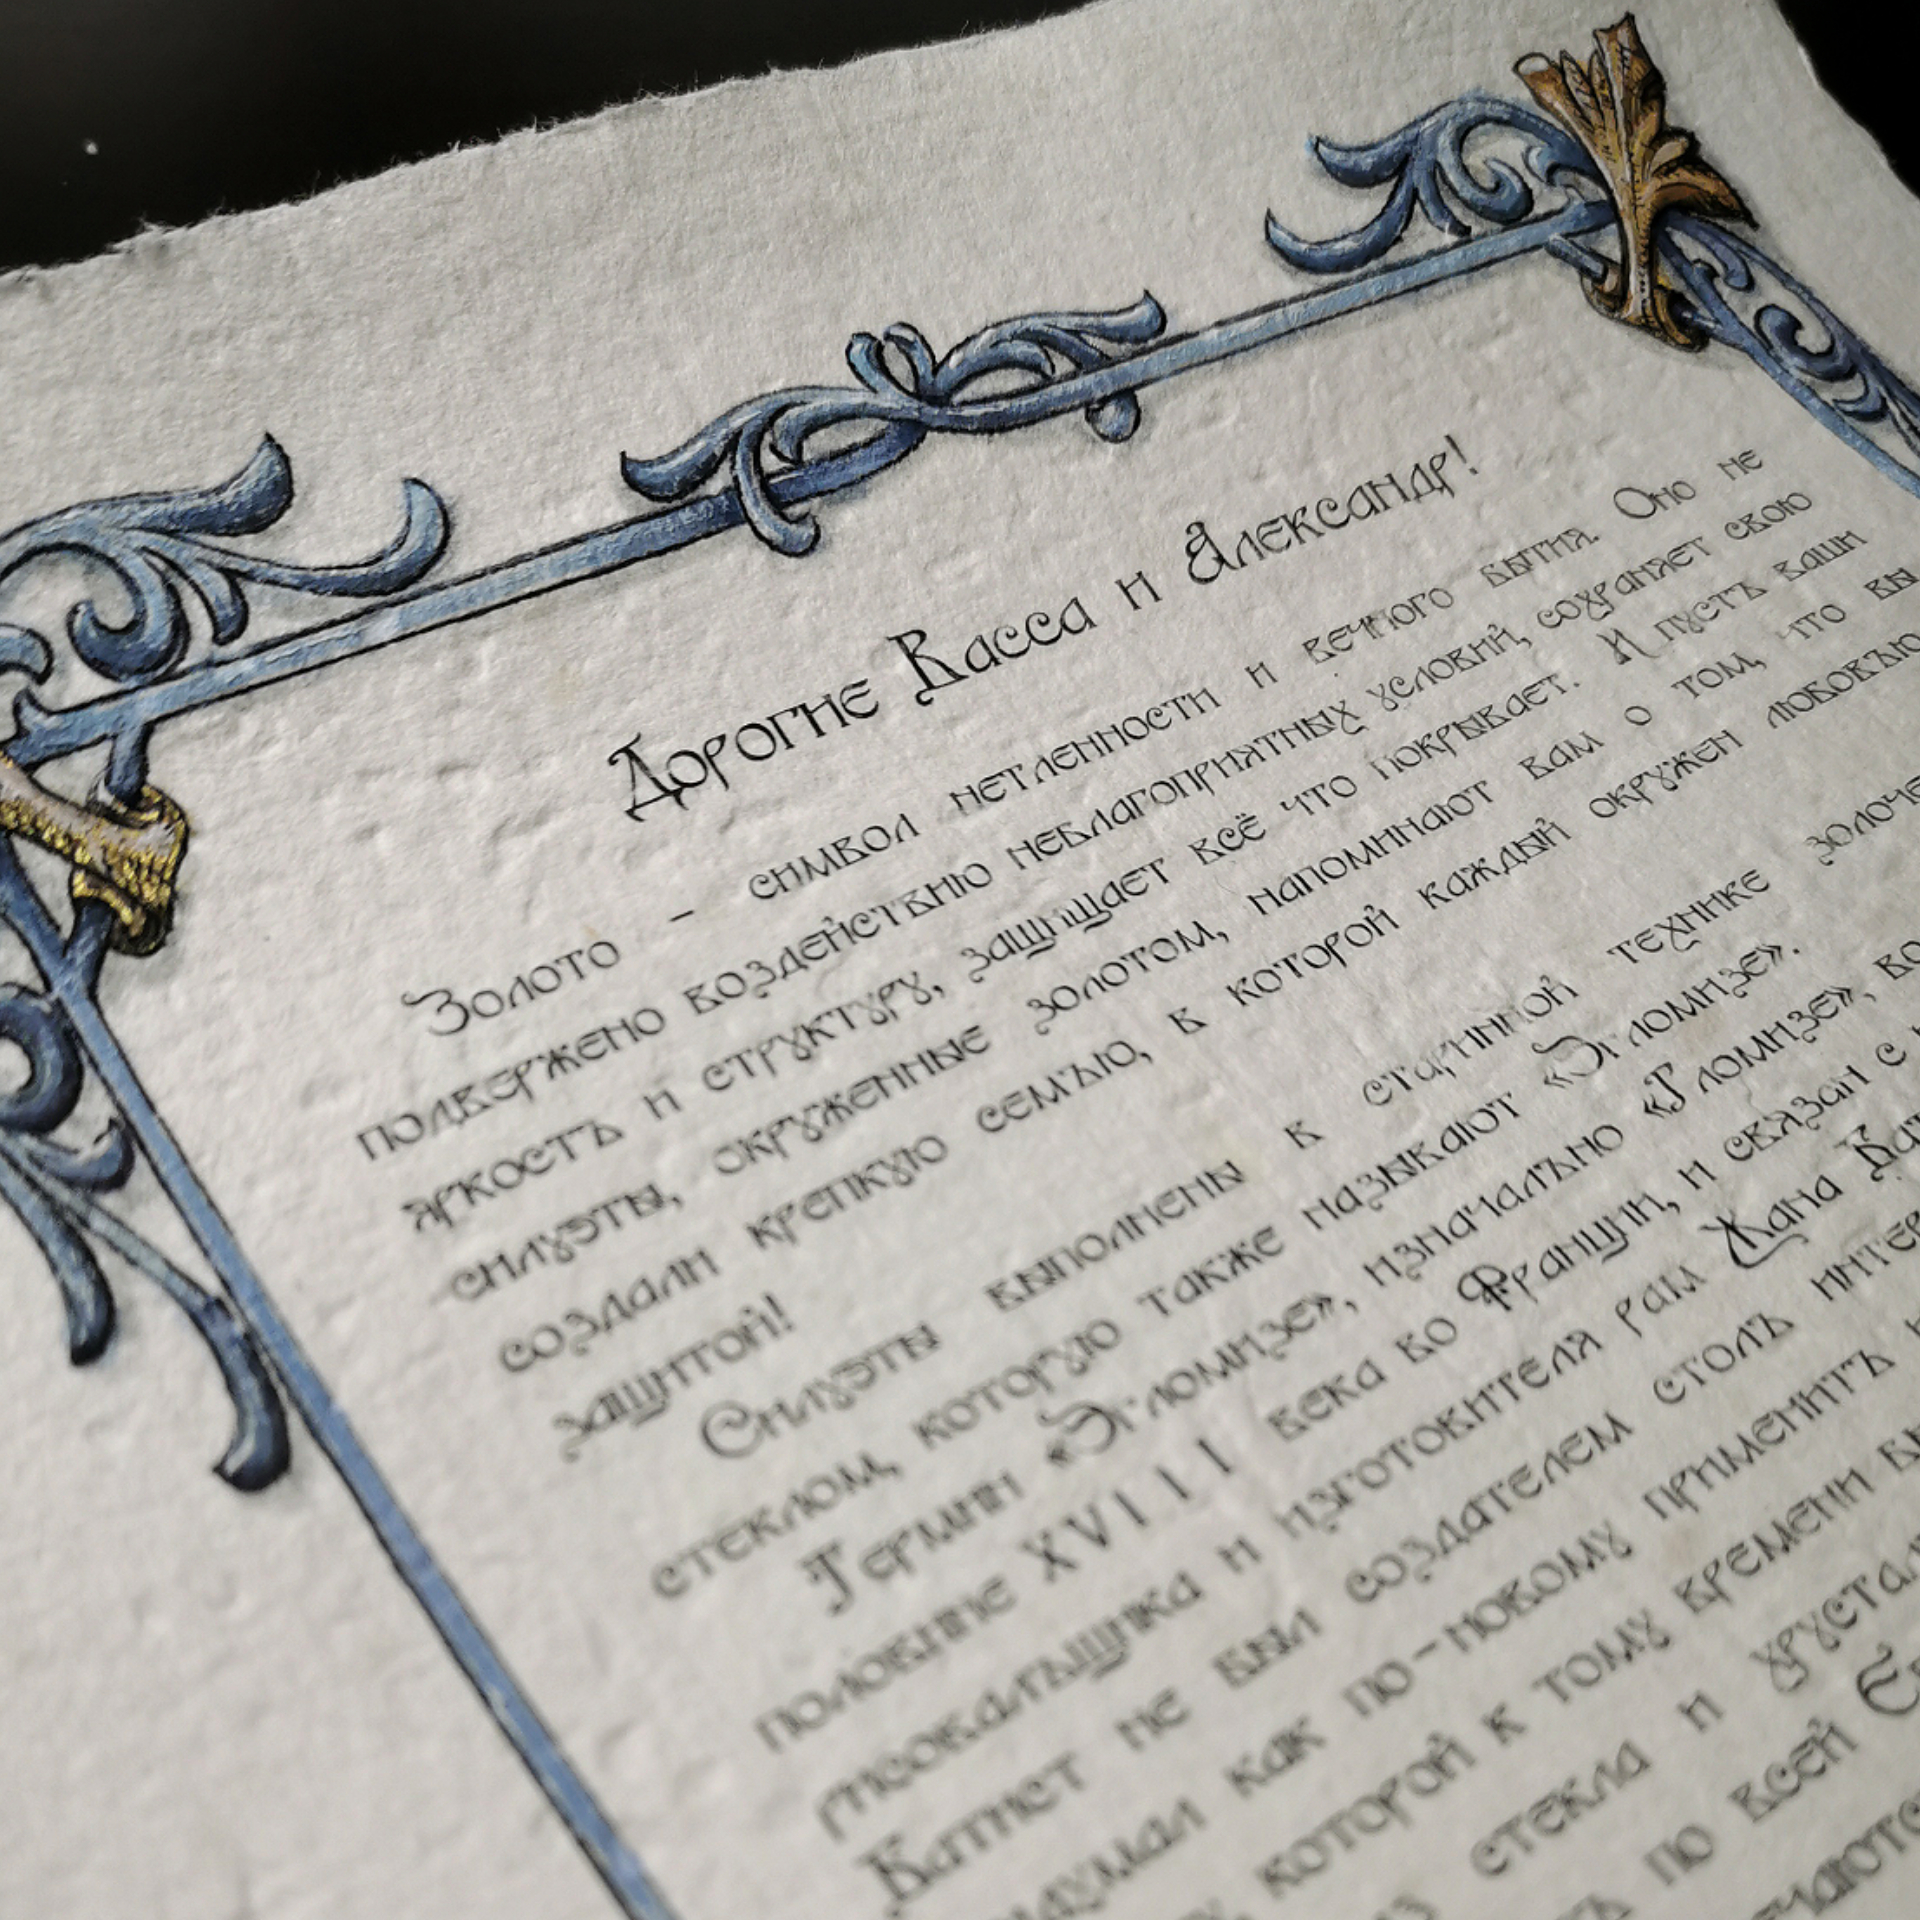 Дорогие Васса и Александр!
Золото – символ нетленности и вечного бытия. Оно не
подвержено воздействию неблагоприятных условий, сохраняет свою
яркость и структуру, защищает всё что покрывает. И пусть ваши
силуэты, окруженные золотом, напоминают вам о том, что вы
создали крепкую семью, в которой каждый окружен любовью
защитой!
Силуэты выполнены в старинной технике
стеклом, которую также называют «Эгломизе».
Термин «Эгломизе», изначально «Гломизе»,
половине XVIII века во Франции, и связан с
рисовальщика и изготовителя рам Жана
Батист не был создателем столь
как по-новому применить
которой к тому времени
стекла и
по всей